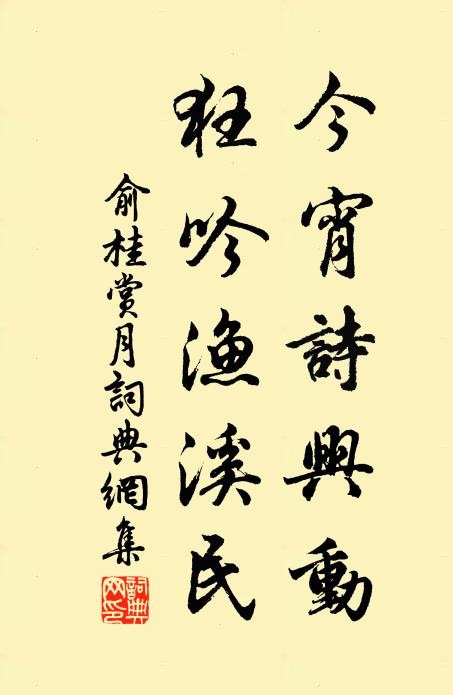 今宵詩興動
狂吟漁溪民
俞桂賞月詞典網集
詞典網印